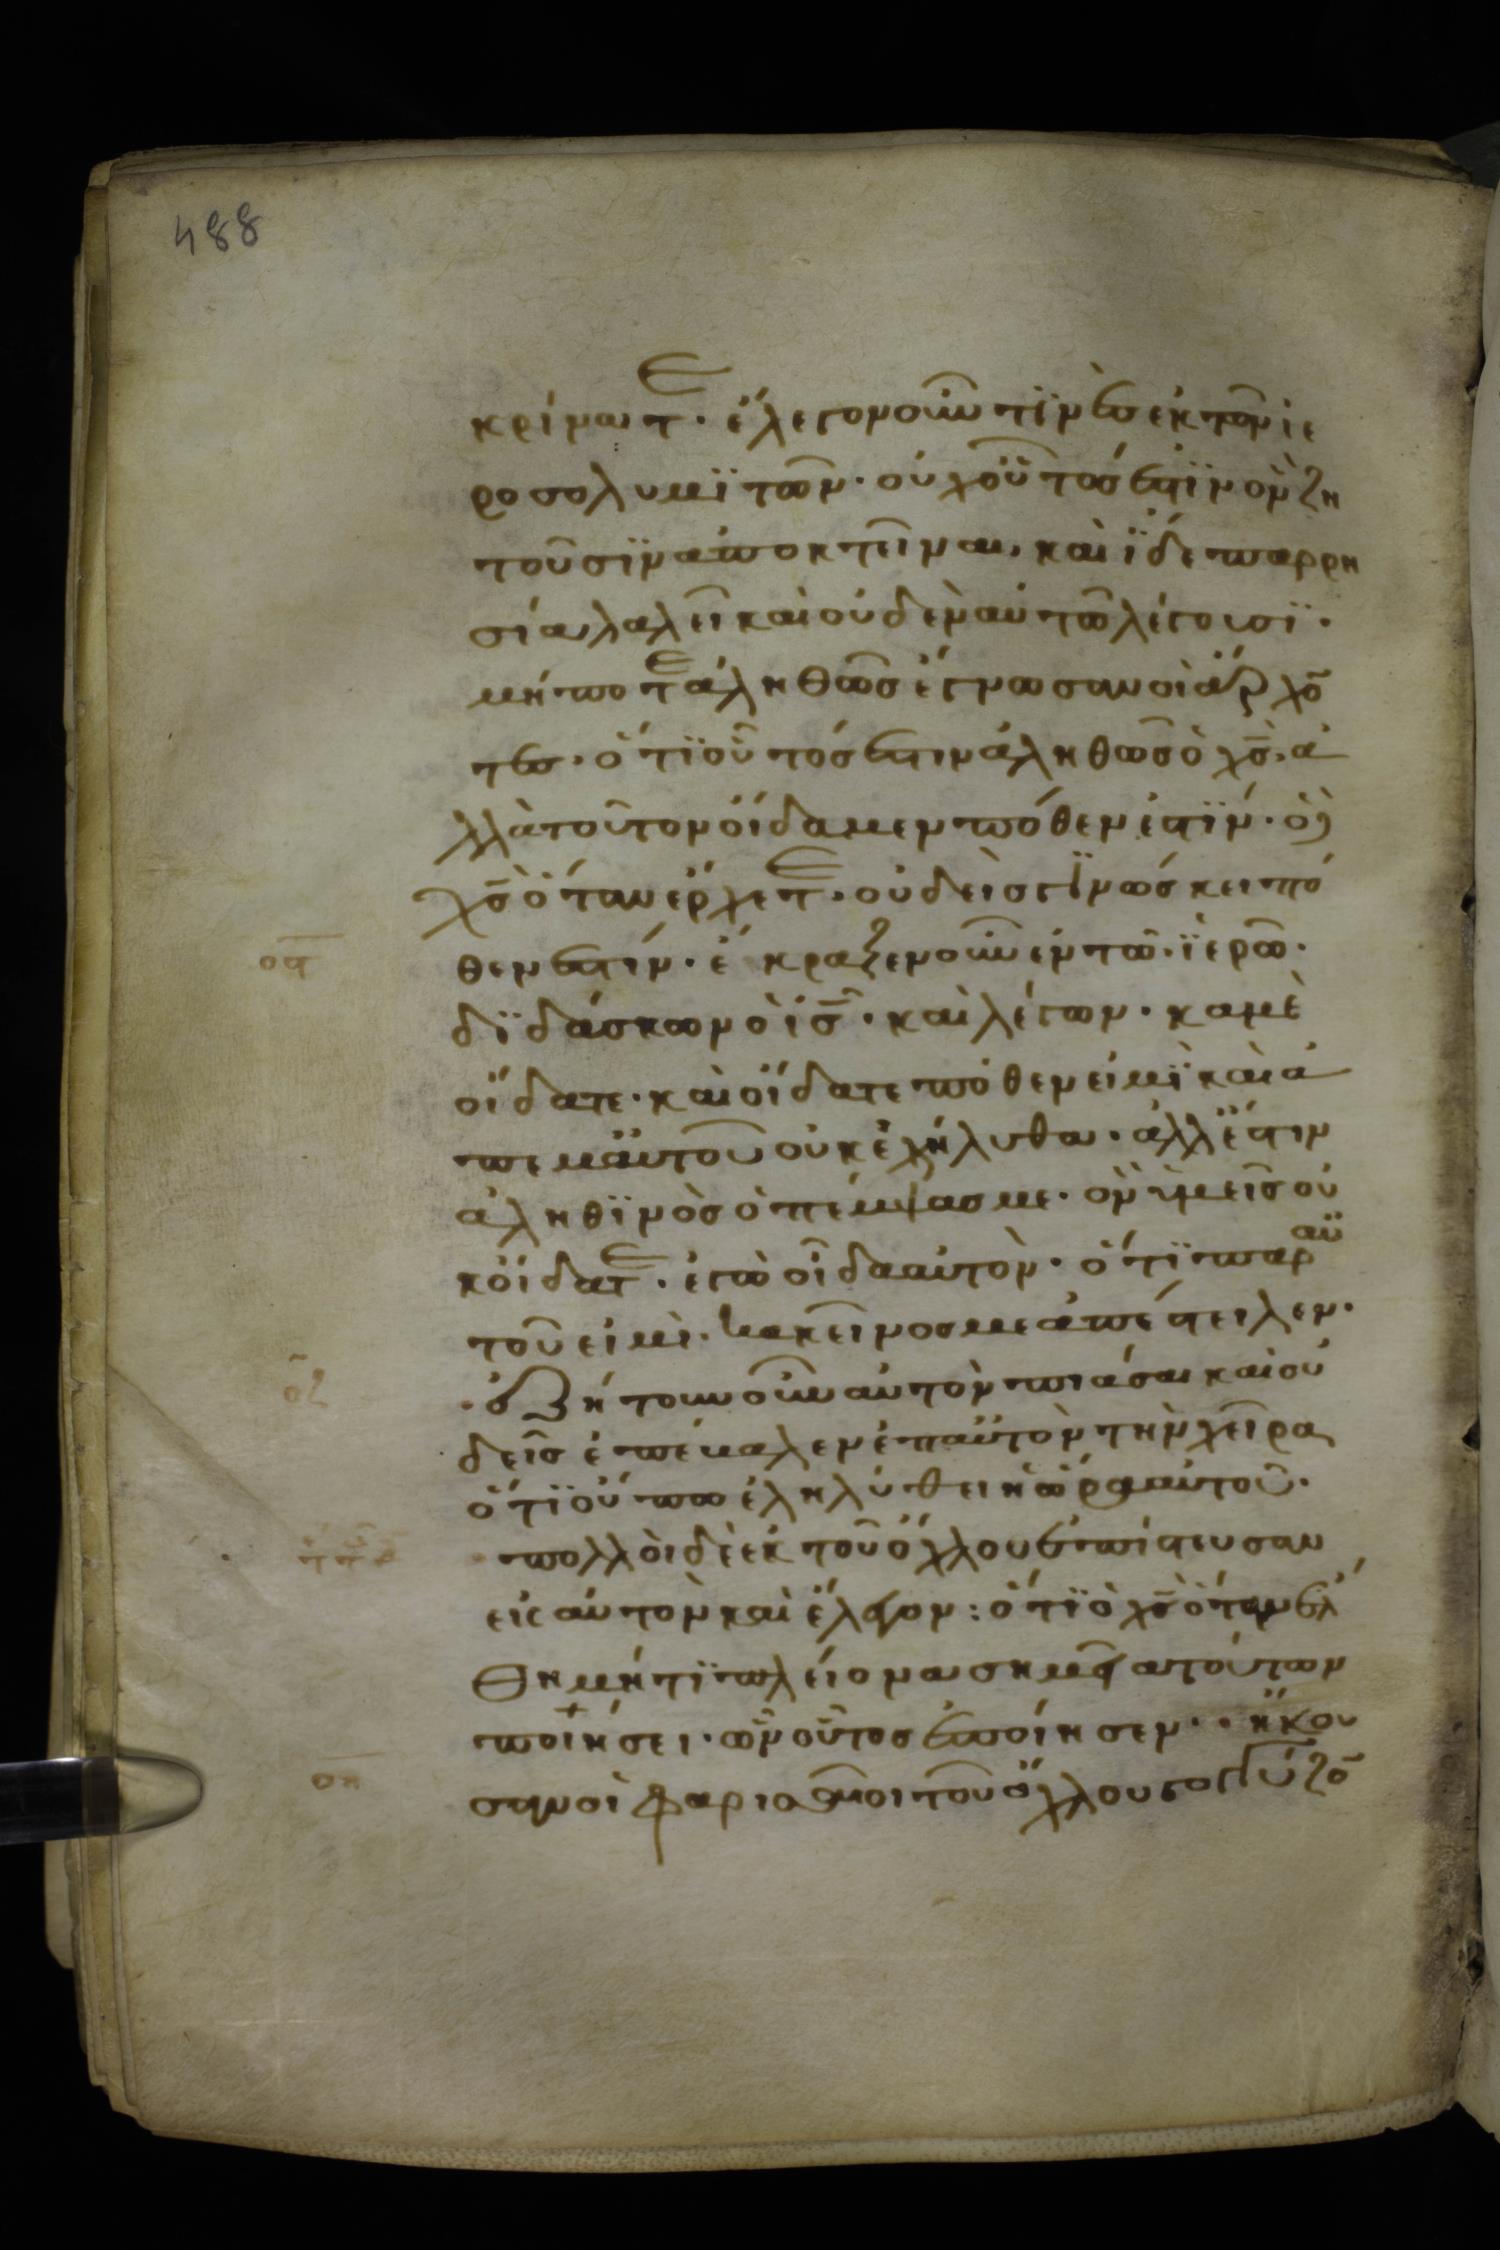 488
κρίνατε· ἔλεγον οὖν τϊνὲσ ἐκ τῶν ϊε
ροσολυμϊτῶν· οὐχ οὗτόσ ἐστϊν ὃν ζη
τοῦσϊν ἀποκτεῖναι, καὶ ϊδε παρρη
σία λαλεῖ καὶ οὐδὲν αὐτῶ λέγουσϊ·
μήποτε ἀληθῶσ ἔγνωσαν οἱ ἄρχο̅
τεσ· ὅτϊ οὗτόσ ἐστιν ἀληθῶσ ὁ χ̅σ̅, ἀ
λλὰ τοῦτον οἴδαμεν πόθεν ἐστϊν· ὁ δὲ
χ̅σ̅ ὅταν ἔρχετε· οὐδεὶσ γϊνώσκει πό
οϛ
θεν ἐστίν· ἔκραζεν οὖν ἐν τῶ ϊερῶ·
δϊδάσκων ὁ ι̅σ̅· καὶ λέγων· καμὲ
οἴδατε· καὶ οἴδατε πόθεν εἰμϊ καὶ ἀ
π ἐμαυτοῦ οὐκ ἐλήλυθα· ἀλλ ἔστιν
ἀληθϊνὸσ ὁ πέμψασ με· ὃν ὑμεῖσ οὐ
κ οἴδατε· ἐγὼ οἶδα αὐτὸν· ὅτϊ παρ αὐ
τοῦ εἰμὶ· κακεῖνοσ με ἀπέστειλεν·
οζ
·ἐζήτουν οὖν αὐτὸν πιάσαι καὶ οὐ
δεῖσ ἐπέβαλεν ἐπ αὐτὸν τὴν χεῖρα
ὅτϊ οὔπω ἐληλύθει ἡ ὥρα αὐτοῦ·
πολλοὶ δὲ ἐκ τοῦ ὄχλου ἐπίστευσαν
εἰσ αὐτὸν καὶ ἔλεγον: ὅτϊ ὁ χ̅σ̅ ὅταν ἔλ
θη μήτϊ πλείονα σημεῖα τούτων
ποιήσει· ὧν οὗτοσ ἐποίησεν·· ἤκου
οη
σαν οἱ φαρισαῖοι τοῦ ὄχλου γογγύζο̅